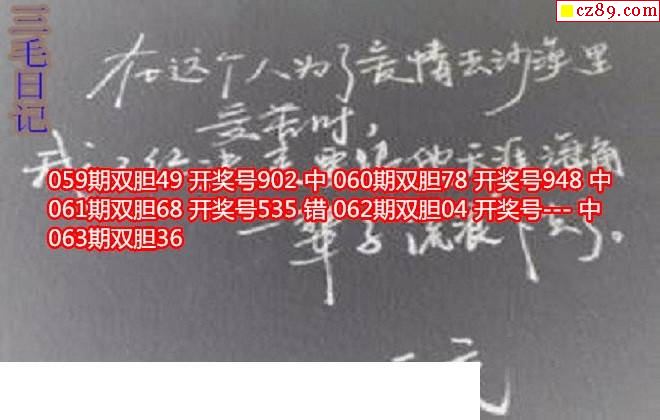 cz89.com
三毛日记
在这个人为了爱情去沙漠里
受苦时,
我
天涯海角
059期双胆49 开奖号902 中 060期双胆78 开奖号948 中
061期双胆68 开奖号535 错 062期双胆04 开奖号--- 中
063期双胆36
一辈子流浪下去了。